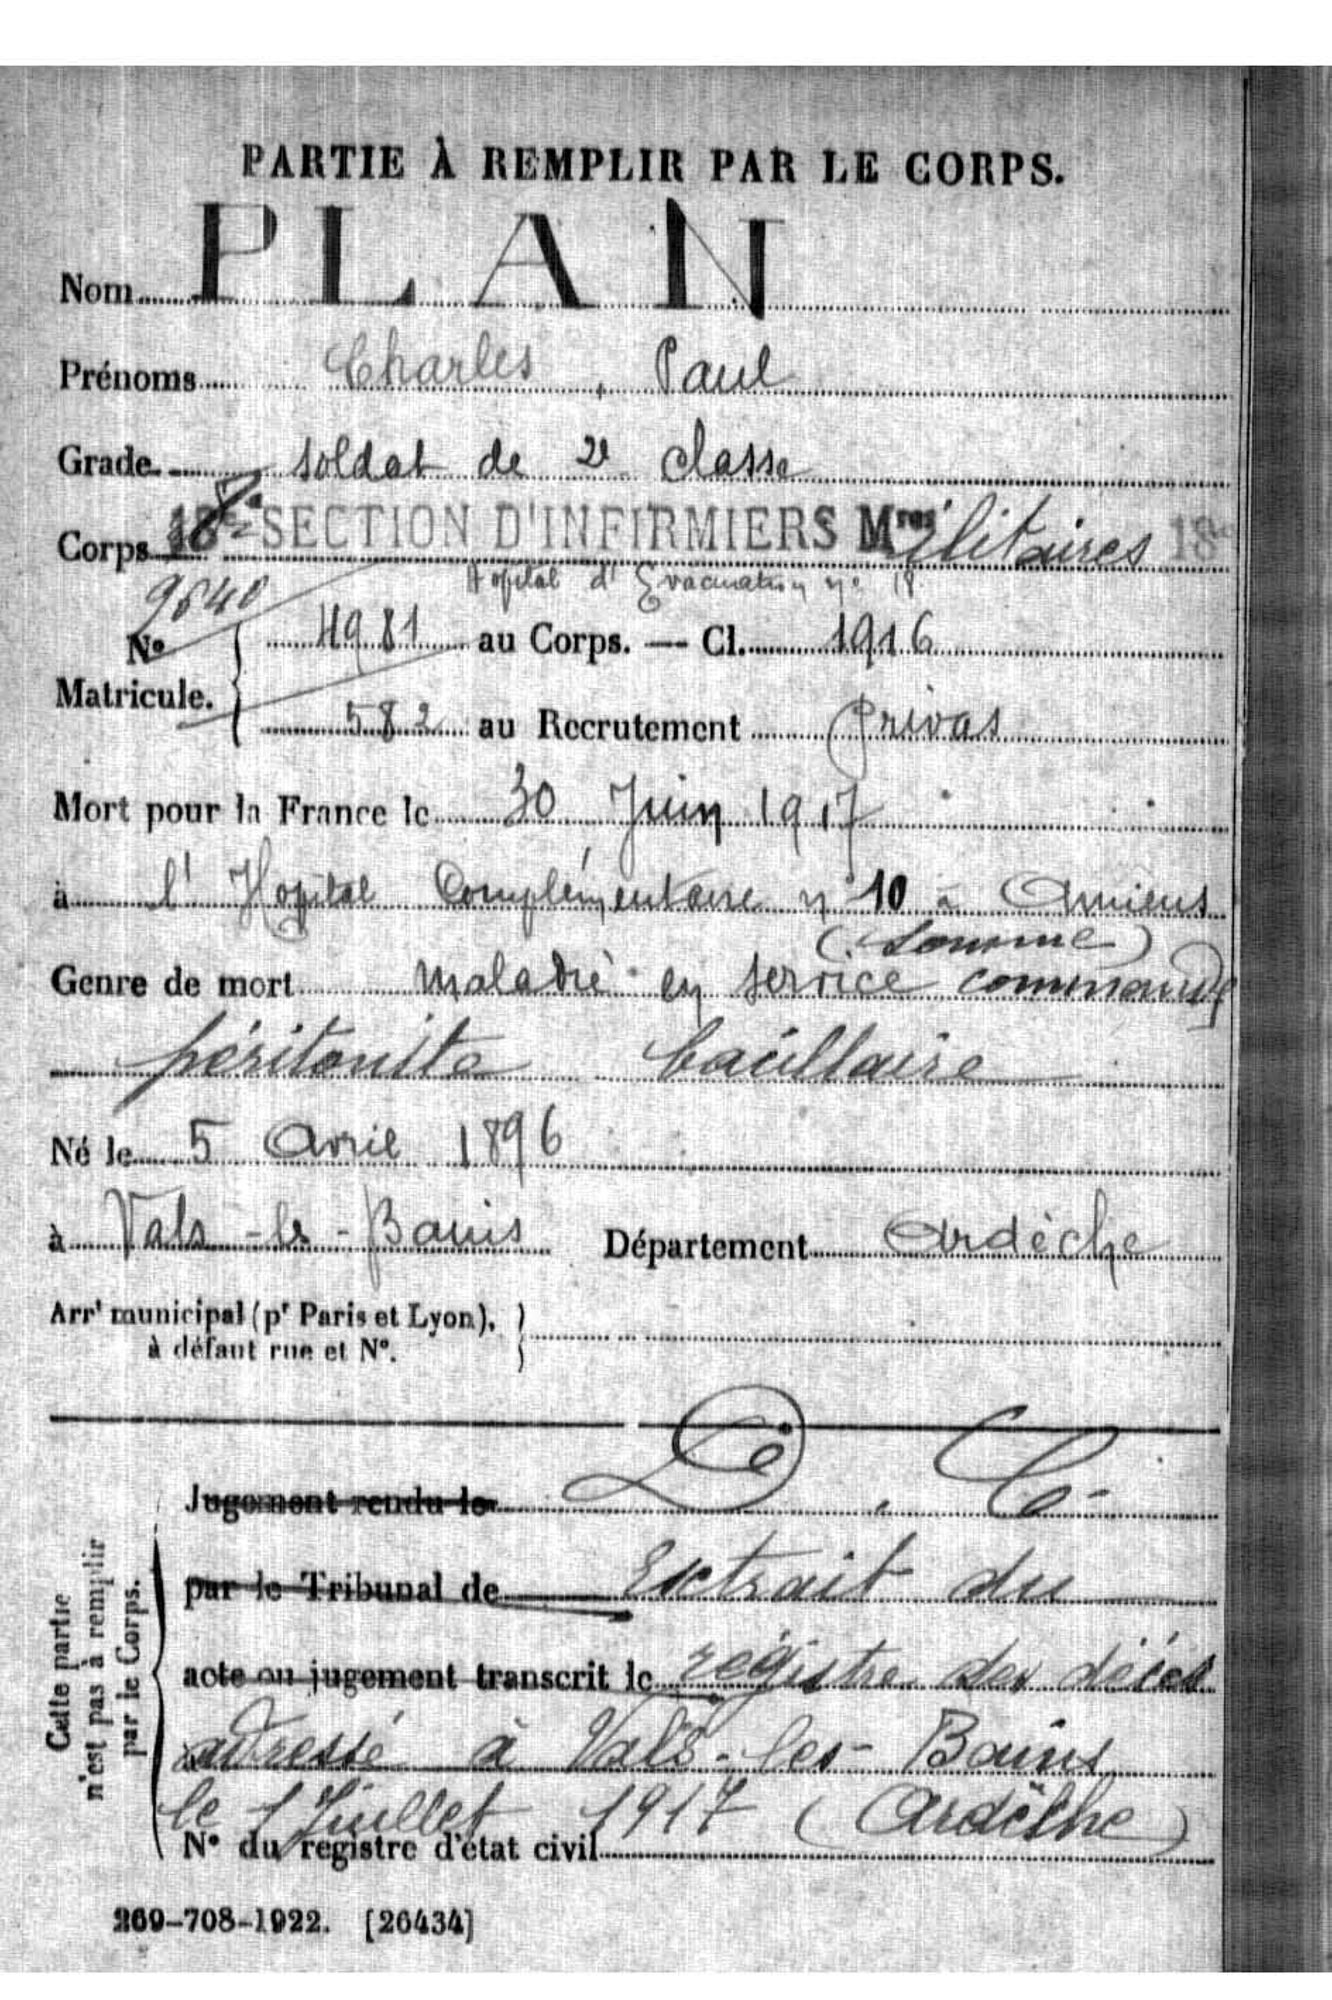 PARTIE À REMPLIR PAR LE CORPS.
Nom PLAN
Prénoms Charles, Paul
Grade soldat de 2e classe
Corps SECTION D'INFIRMIERS Mres ilitaires 18
Hopital d'Evacuation no 18
9640
No Matricule. 4981 au Corps. — Cl. 1916
582 au Recrutement Privas
Mort pour la France le 30 Juin 1917
à l'Hopital Complémentaire no 10 à Amiens
(Somme)
Genre de mort maladie en service commandé
péritonite bacillaire
Né le 5 Avril 1896
à Vals-les-Bains Département Ardèche
Arrt municipal (pr Paris et Lyon),
à défaut rue et No.
Cette partie
n'est pas à remplir
par le Corps.
Jugement rendu le
par le Tribunal de Extrait du
acte ou jugement transcrit le registre des décès
adressé à Vals-les-Bains
le 1 Juillet 1917 (Ardèche)
No du registre d'état civil
269-708-1922. [26434]